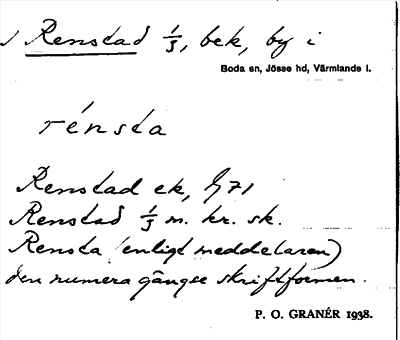 Renstad 1/3, bek, by i
Boda sn, Jösse hd, Värmlands l.
rénsta
Renstad ek, G71
Renstad 1/3 m. kr. sk.
Rensta (enligt meddelaren)
den numera gängse skriftformen.
P. O. GRANÉR 1938.